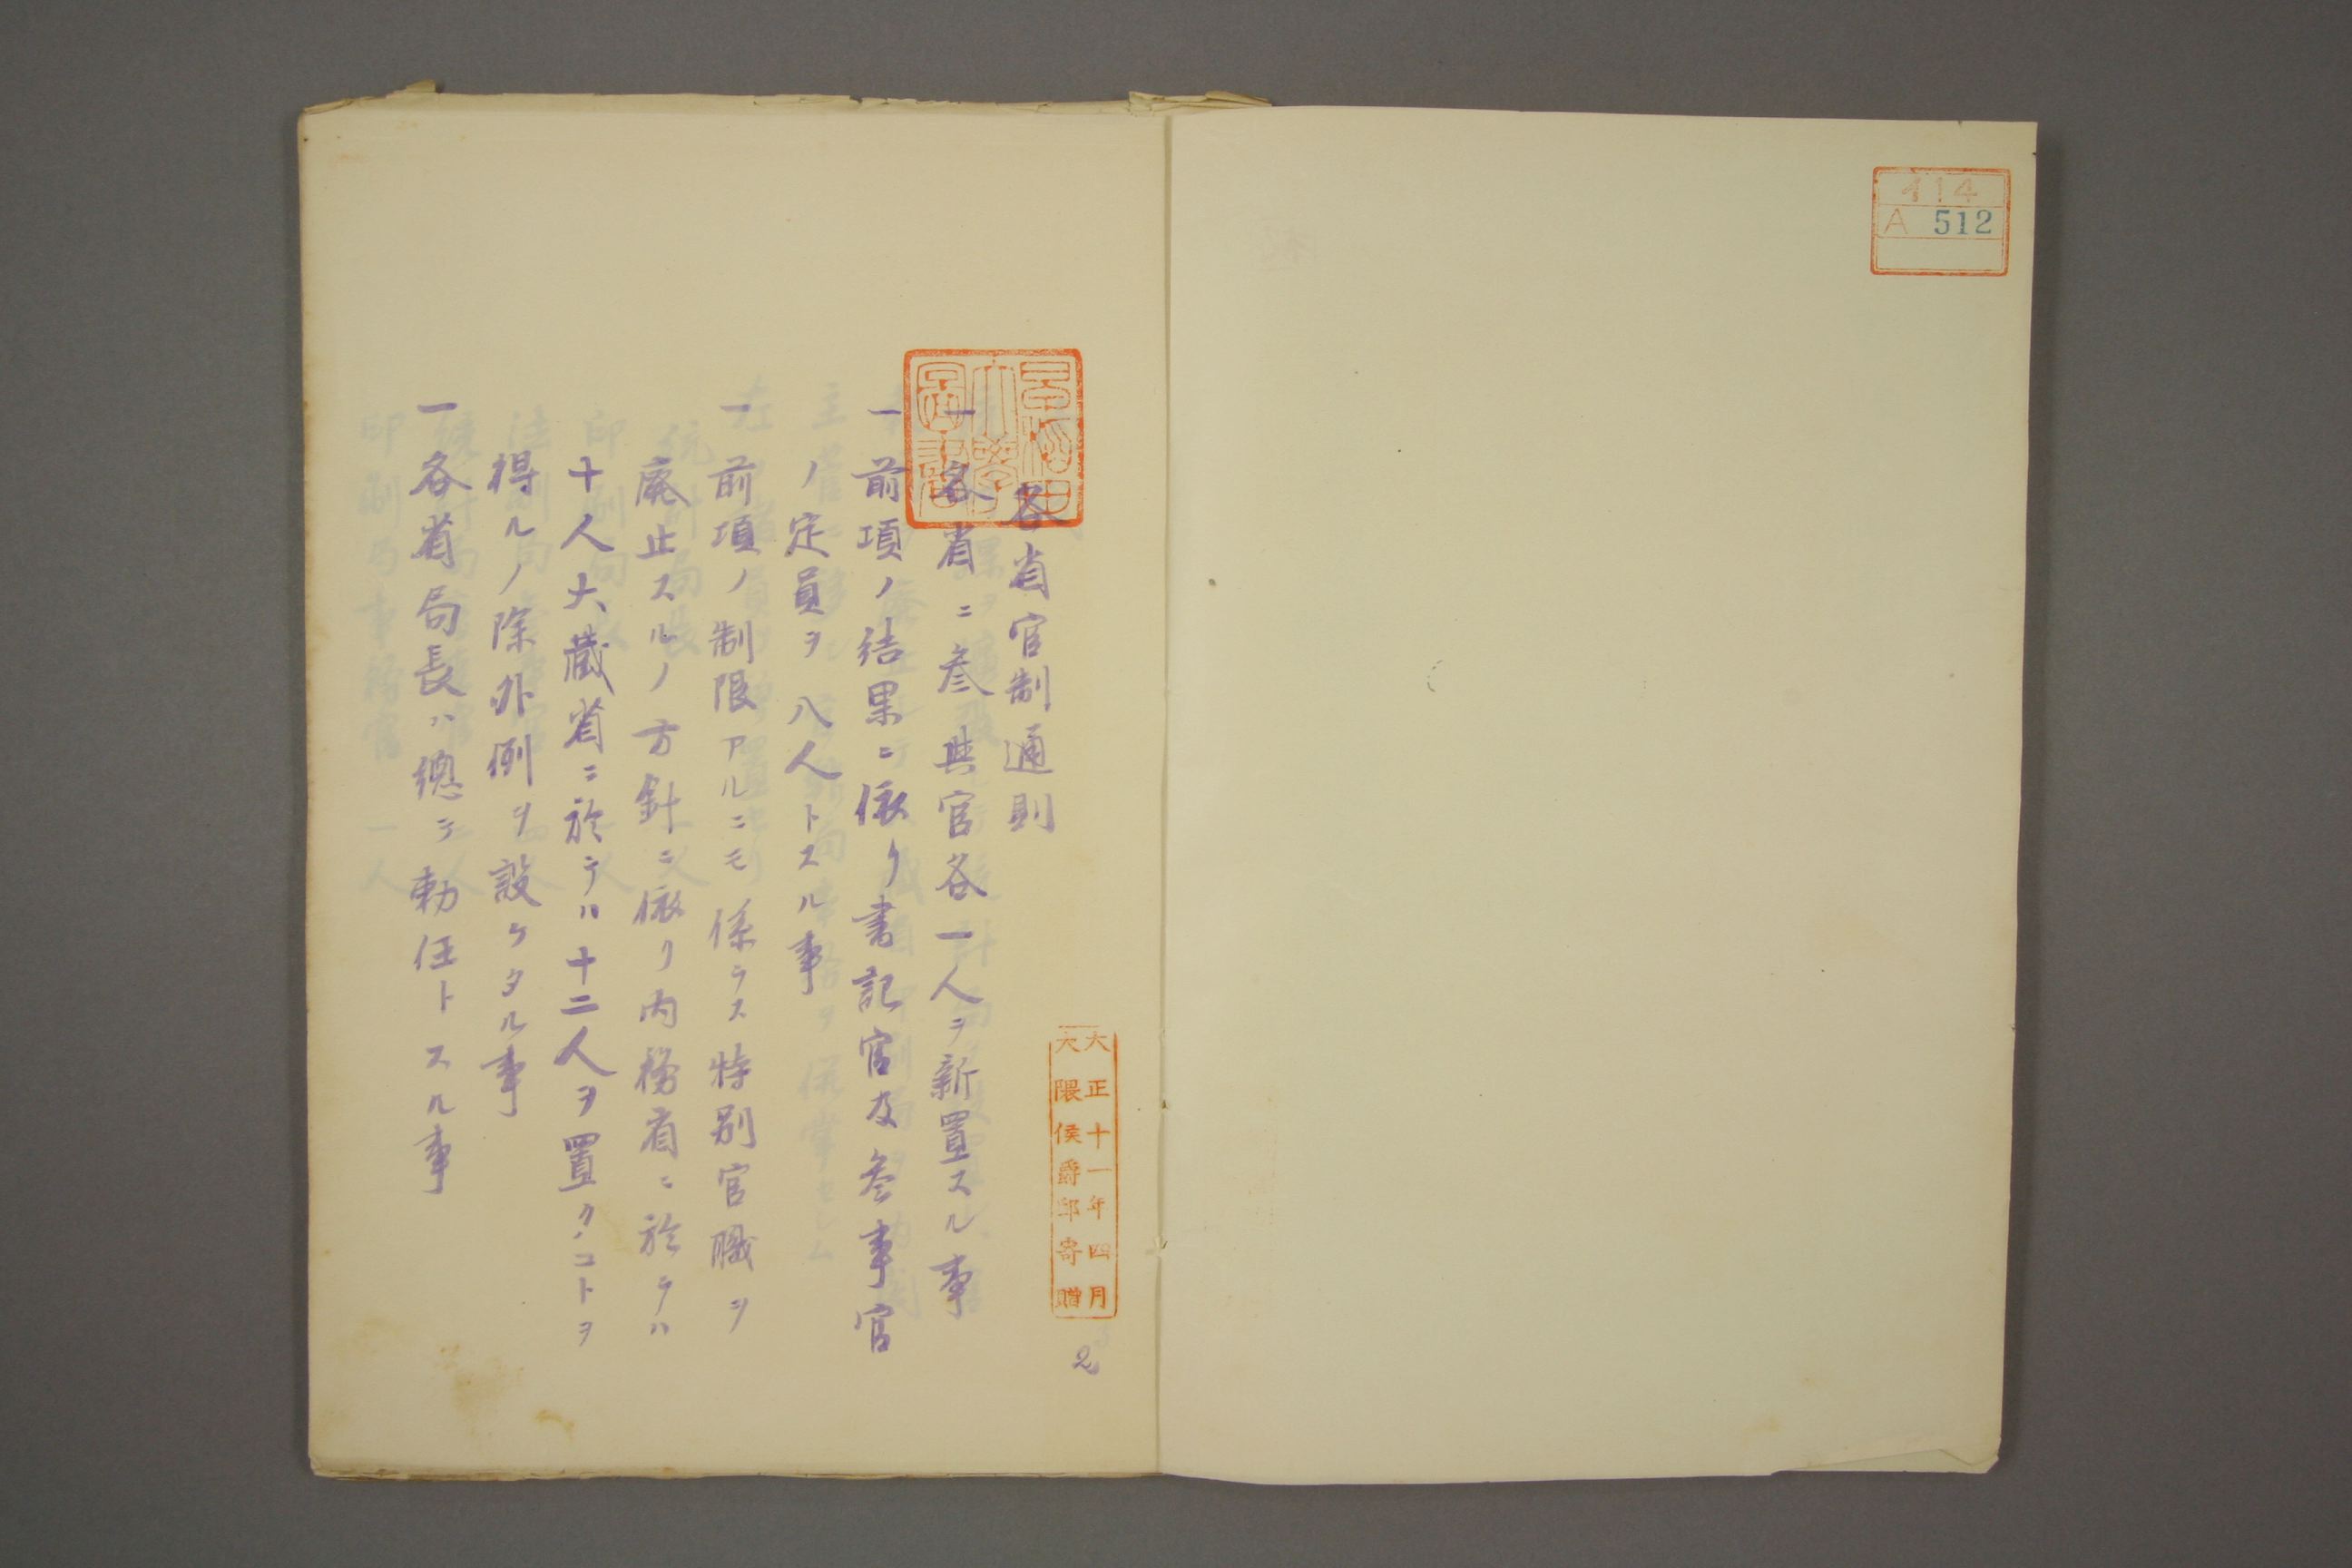 114
A 512
早稲田
大學
圖書
大正十一年四月
大隈侯爵邸寄贈
各省官制通則
一各省ニ参與官各一人ヲ新置スル事
一前項ノ結果ニ依リ書記官及参事官
ノ定員ヲ八人トスル事
一前項ノ制限アルニモ係ラス特別官職ヲ
廃止スルノ方針ニ依リ内務省ニ於テハ
十人大藏省ニ於テハ十二人ヲ置クコトヲ
得ルノ除外例ヲ設ケタル事
一各省局長ハ總テ勅任トスル事
2